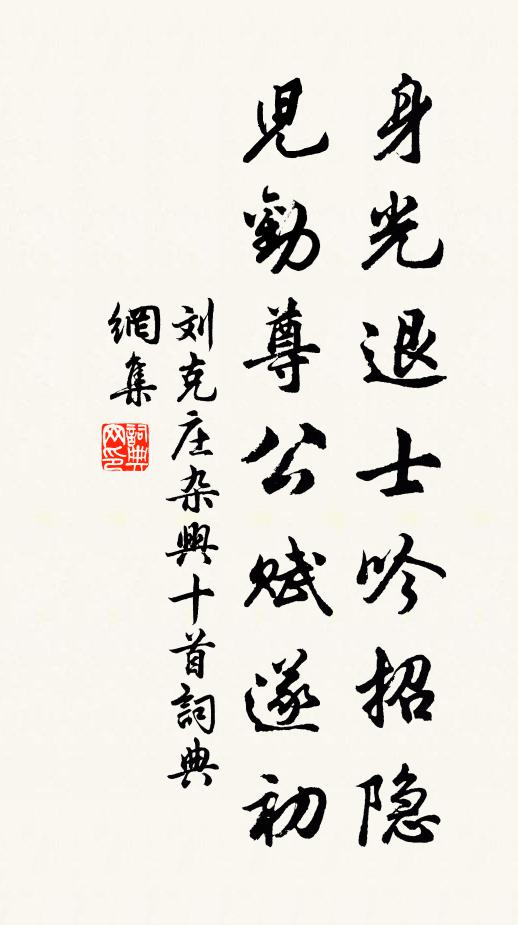 身光退士吟招隐
児勸尊公赋遂初
刘克庄杂興十首詞典
網集
詞典網印